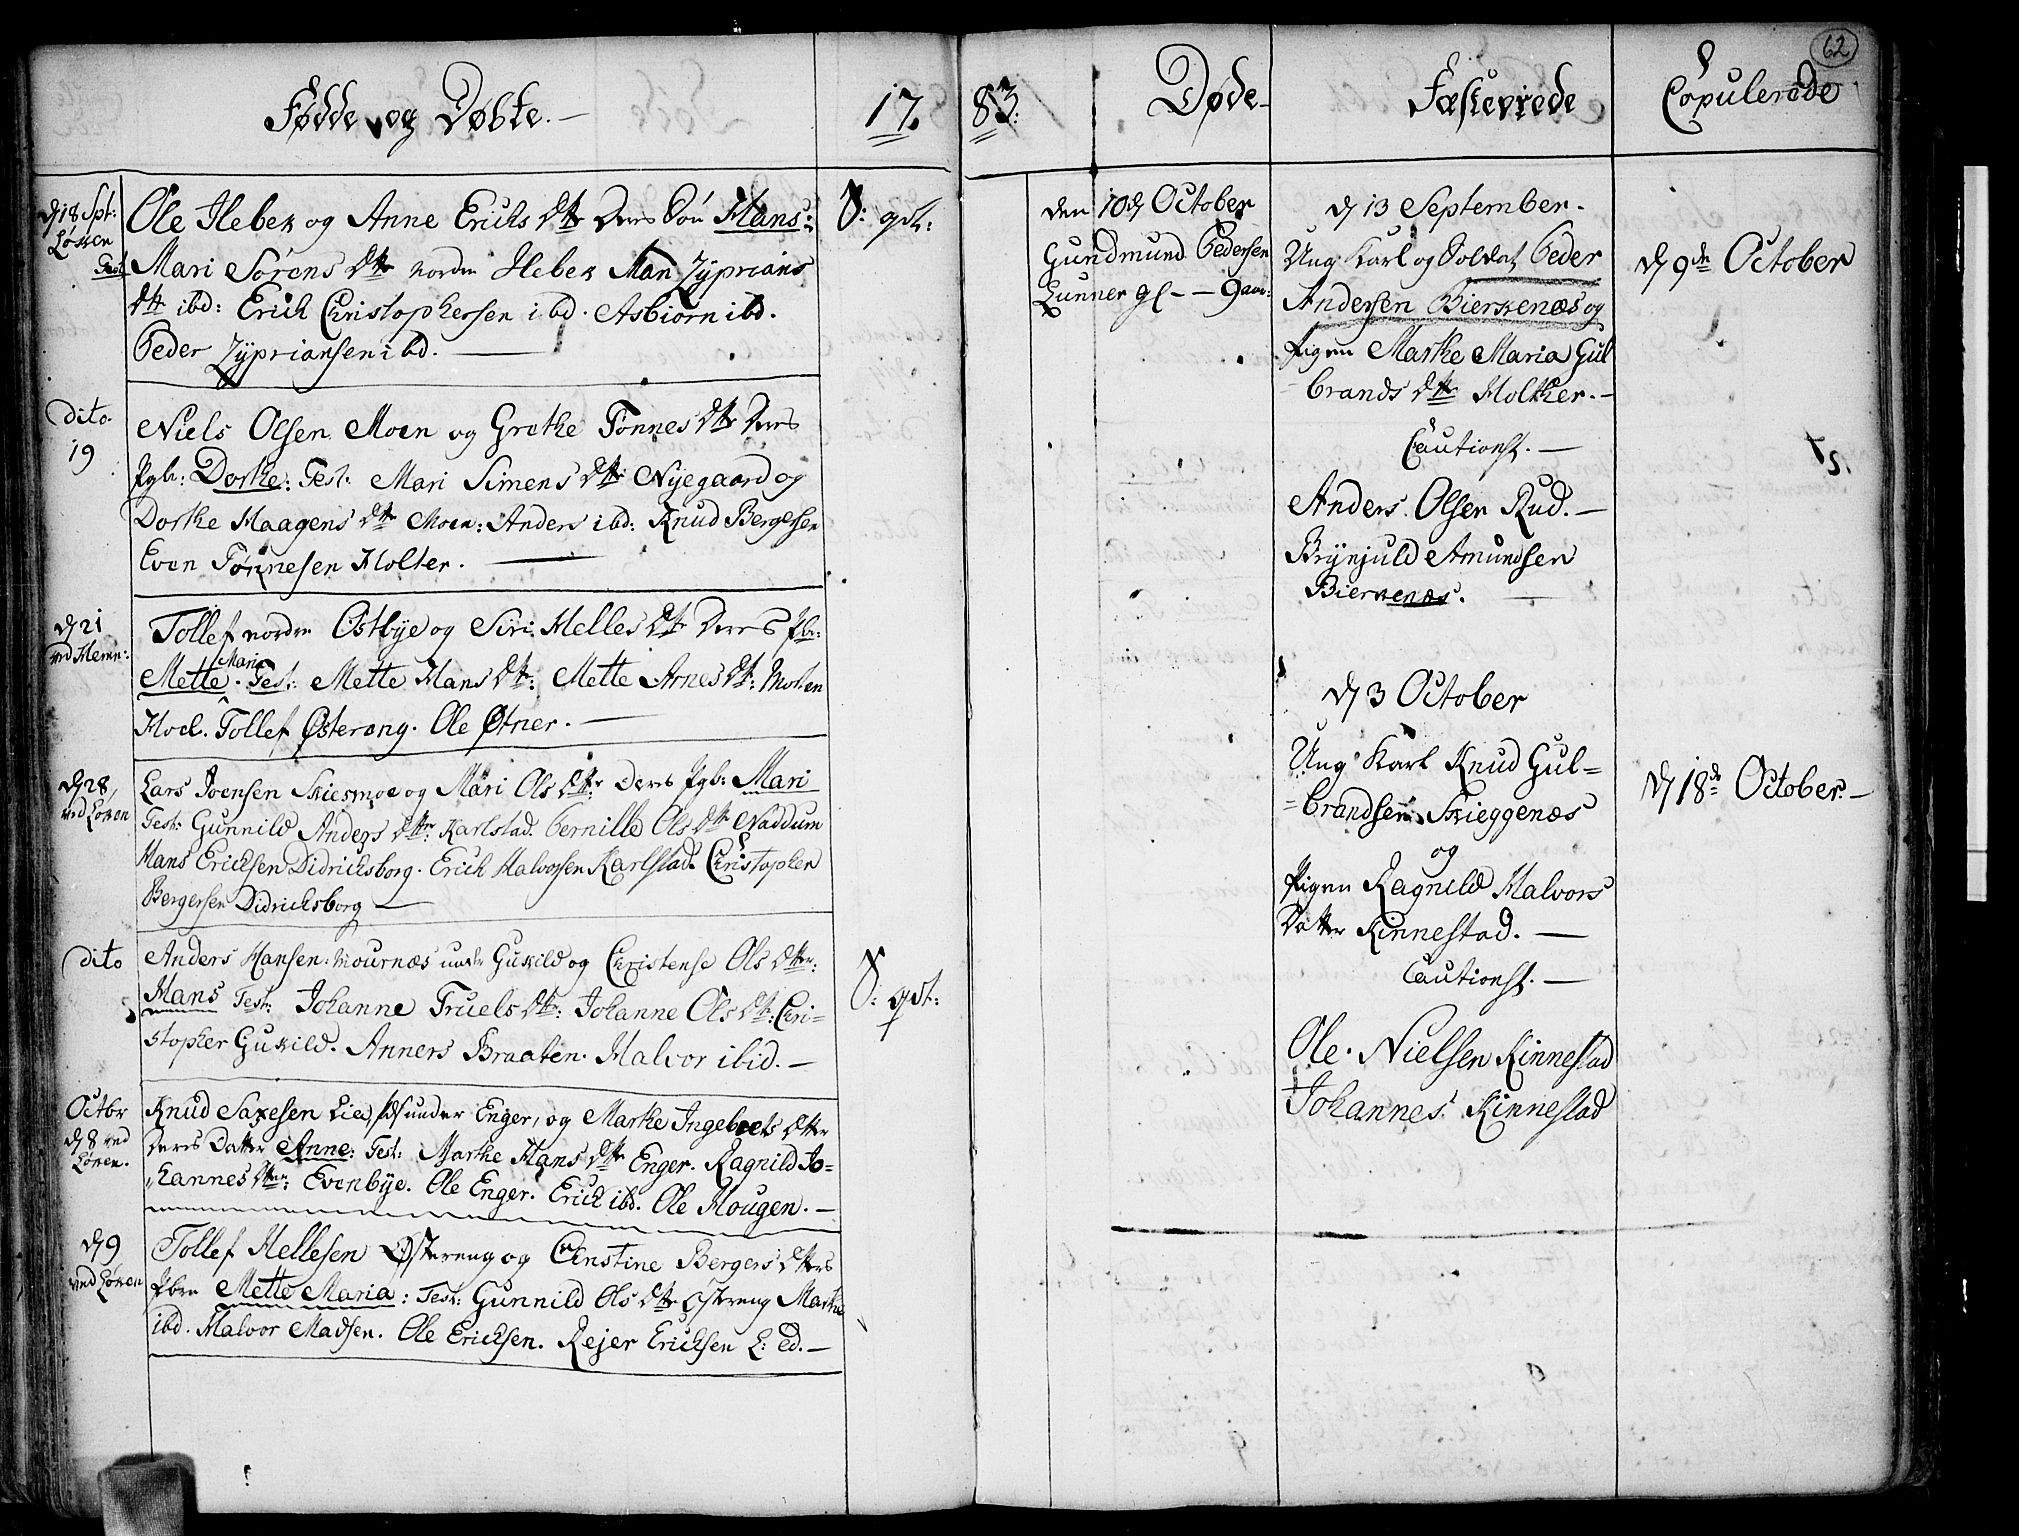 Fødde og Døbte.
17.
d 18 Spt:
Løken
Test
Ole Heber og Anne Erichs dtr Deres Søn Hans:
Mari Sørens dtr nordre Heber Mari Zyprians
dtr ibd: Erich Christophersen ibd. Asbiørn ibd.
Peder Zÿpriansen ibd.
S: qvt:
dito
19
Niels Olsen Moen og Grethe Tønnes dtr Deres
Pgb: Dorthe: Test: Mari Simens dtr Nyegaard og
Dorthe Haagens dtr Moen: Anders ibd: Knud Bergesen
Even Tønnesen Holter.
d 21
ved Hemn:
Tollef nordre Ostbÿe og Siri Helles dtr Deres Pb:
Mette Maria. Test: Mette Hans dtr: Mette Arnes dtr: Morten
Hoel. Tollef Østereng. Ole Øtner.
d 28
ved Løken
Lars Joensen Skiesmoe og Mari Ols dtr: Deres Pgb: Mari
Test: Gunnild Anders dtr: Karlstad. Pernille Ols dtr Naddum
Hans Ericksen Didrichsborg. Erich Halvorsen Karlstad. Christopher
Bergersen Didrichsborg
dito
Anders Hansen: Mournæs under Gukild og Christense Ols dtr:
Hans Test: Johanne Truels dtr: Johanne Ols dtr: Chri-
stopher Gukild. Anners Braaten. Halvor ibid.
S: qvt:
Octbr
d 8 ved
Løken.
Knud Saxesen Lie, under Enger, og Marthe Ingebrets dtter
Deres Datter Anne: Test: Marthe Hans dtr Enger. Ragnild Jo-
hannes dtr: Evenbÿe. Ole Enger. Erich ibd. Ole Hougen.
d 9
ved Løken
Tollef Hellesen Østereng og Christine Bergers dtters
Pbrn Mette Maria: Test: Gunnild Ols dtr Østreng Marthe
ibd. Halvor Madsen. Ole Ericksen. Rejer Ericksen L: ed.
83.
Døde
Fæstevede
Copulerede
62
den 10d October
Gundmund Pedersen
Lunner gl - - 9 aar:
d 13 September.
Ung Karl og Soldat Peder
Andersen Bierkenæs og
Pigen Marthe Maria Gul
brands dtr Holther.
Cautionst.
Anders Olsen Rud.
Brÿnjuld Amundsen
Bierkenæs.
d 3 October
Ung Karl Knud Gul=
=brandsen Skieggenæs
og
Pigen Ragnild Halvors
Datter Kinnestad.
Cautionst.
Ole Nielsen Kinnestad
Johannes Kinnestad
d 9de October
d 18de October.